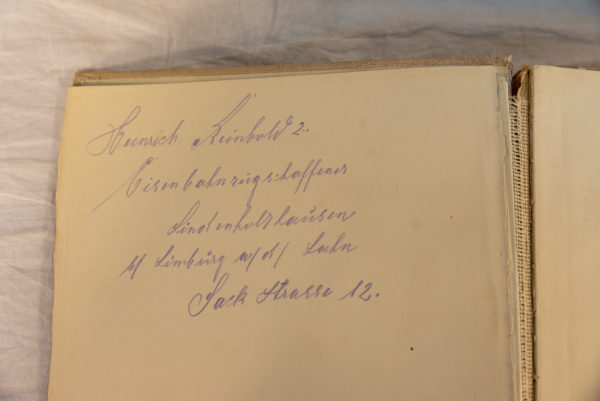 Heinrich Reinbold 2.
Eisenbahnzugschaffener
Lindenholzhausen
b/ Limburg a/d/ Lahn
Sack Strasse 12.